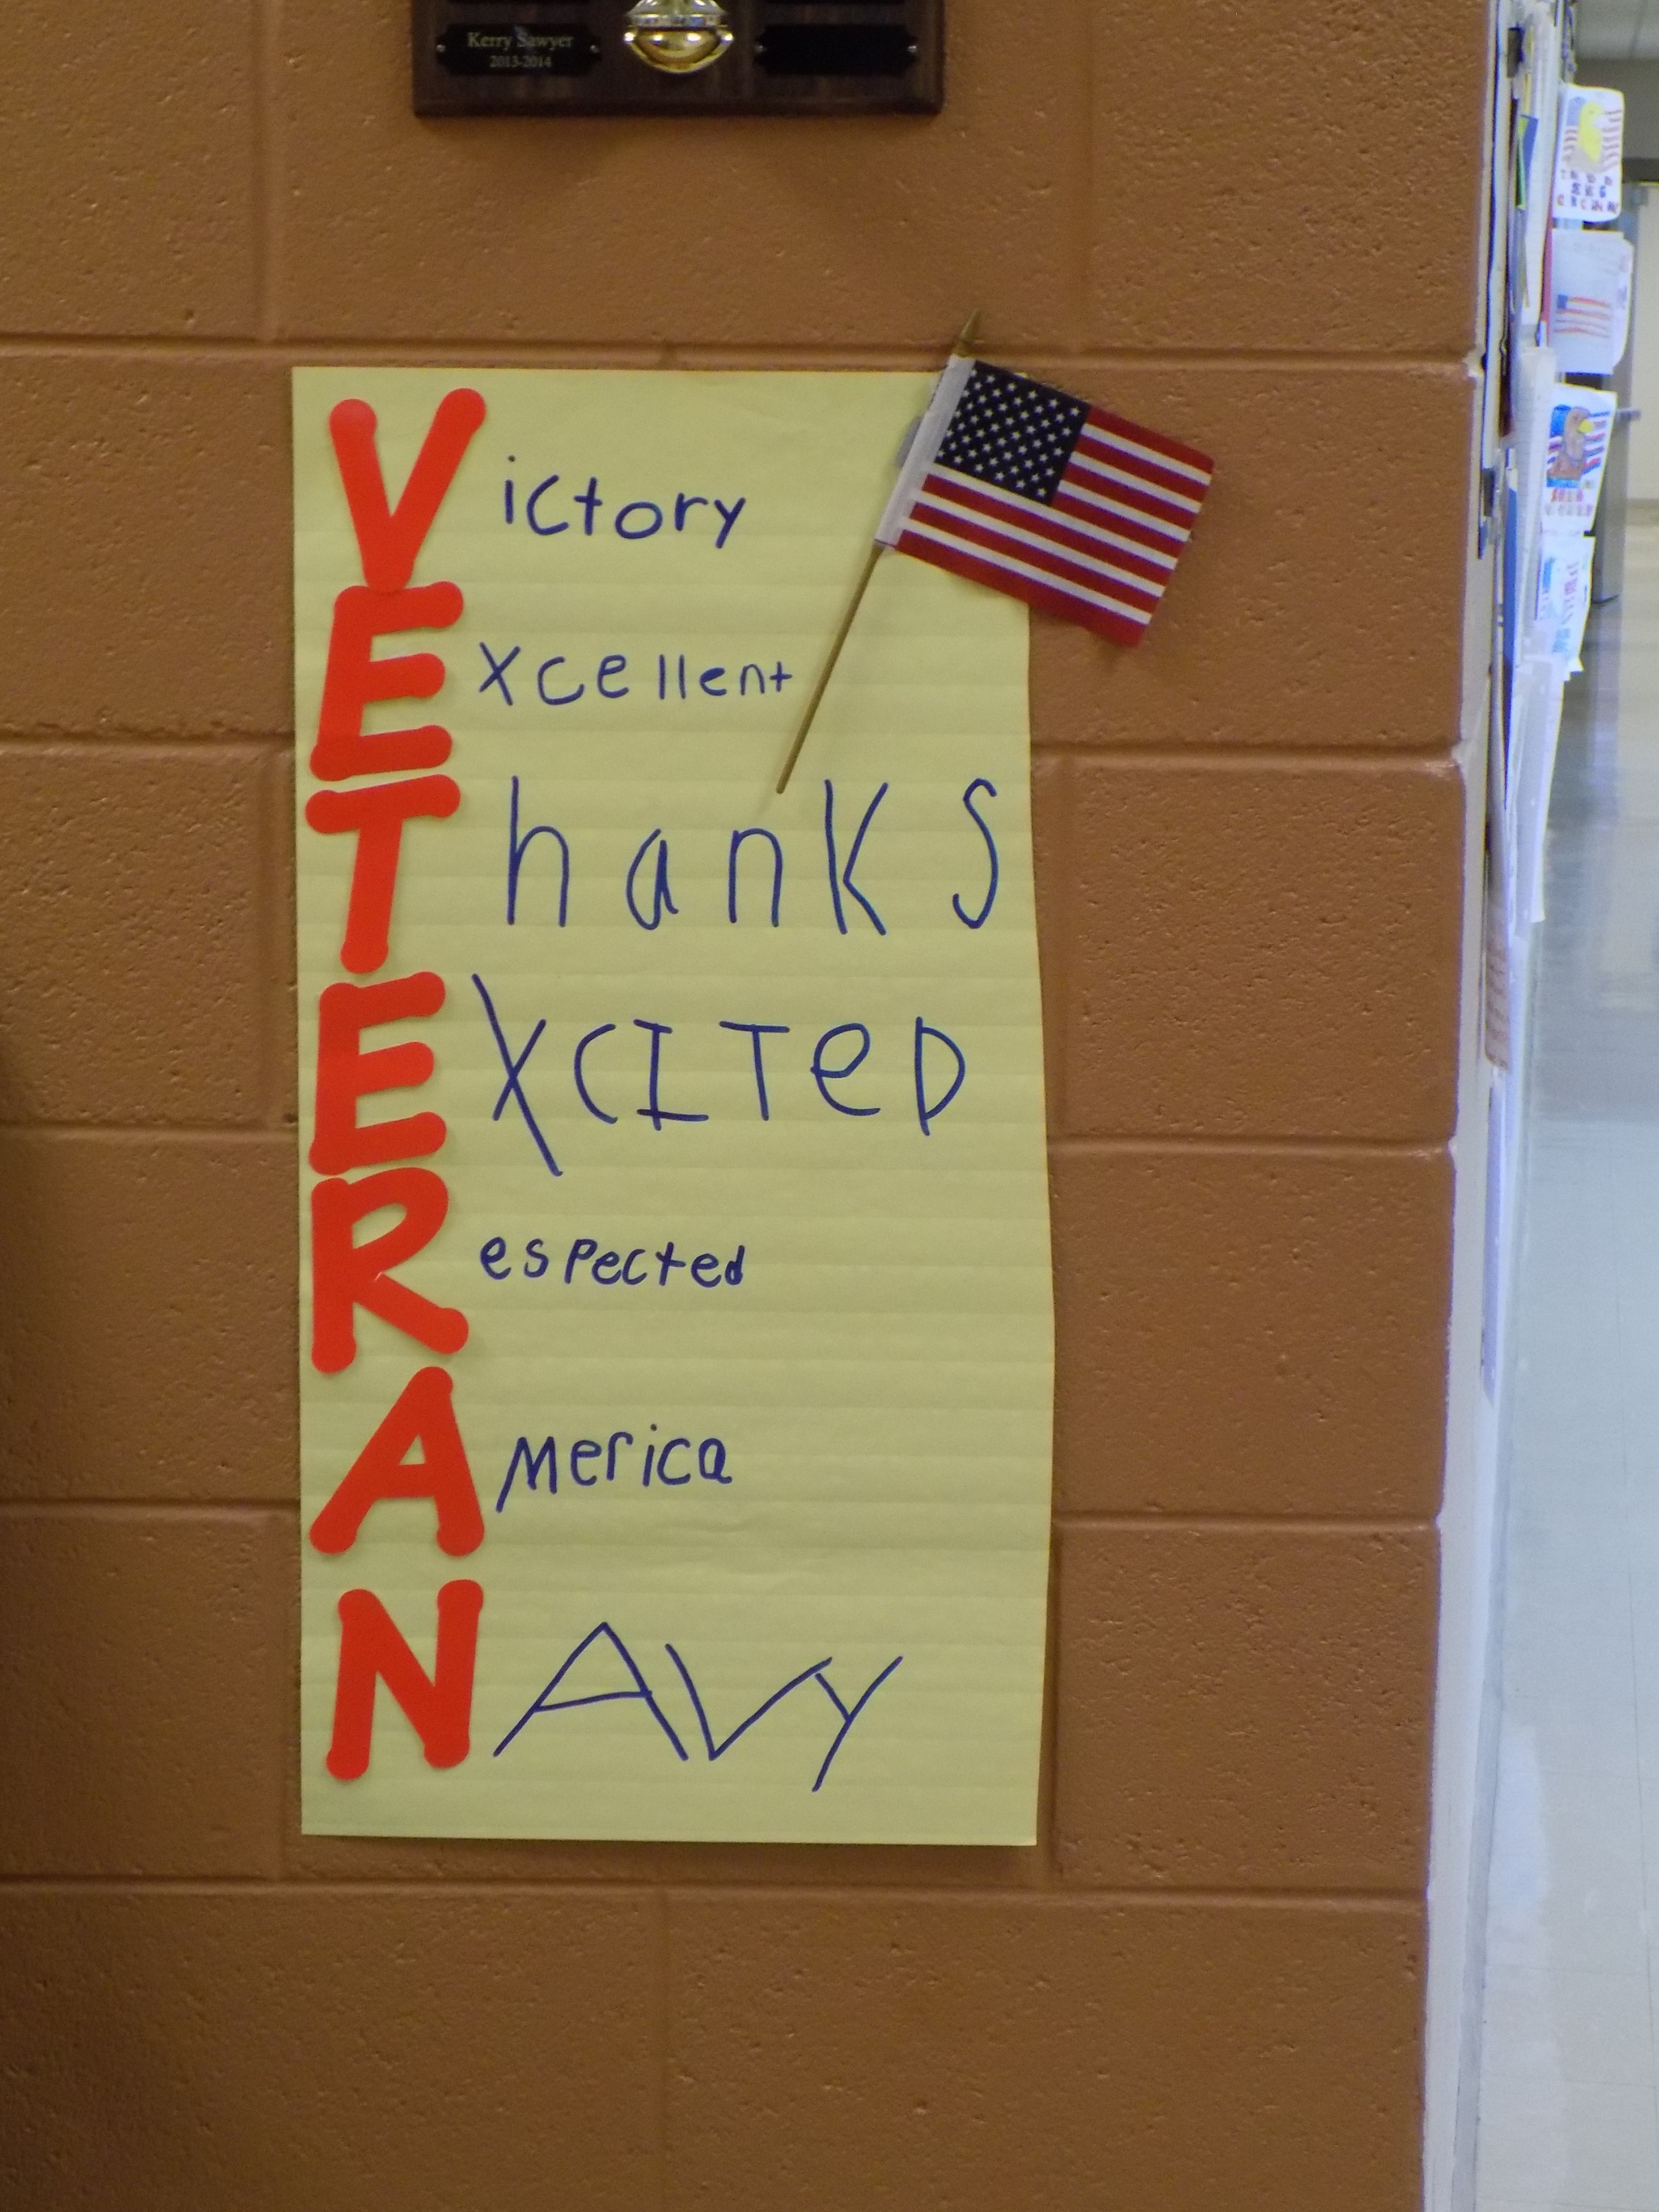 Kerry Sawyer
2013-2014
Victory
Excellent
ThanKS
EXCITeD
Respected
America
NAVY